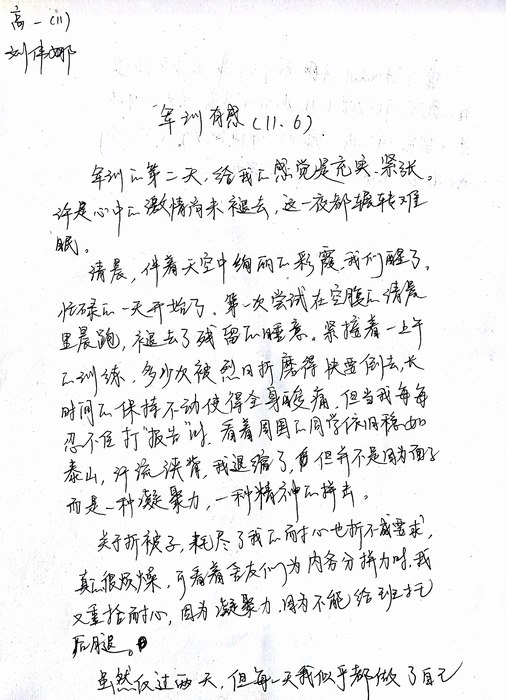 高一(11)
刘伟娜
军训有感(11.6)
军训的第二天,给我的感觉是充实、紧张。
许是心中的激情尚未褪去,这一夜都辗转难
眠。
清晨,伴着天空中绚丽的彩霞,我们醒了。
忙碌的一天开始了。第一次尝试在空腹的清晨
里晨跑,褪去了残留的睡意。紧接着一上午
的训练,多少次被烈日折磨得快要倒去,长
时间的保持不动使得全身酸痛,但当我每每
忍不住打“报告”时,看着周围的同学依旧稳如
泰山,汗流浃背,我退缩了,但并不是因为面子
而是一种凝聚力,一种精神的拼击。
关于折被子,耗尽了我的耐心也折不成要求,
真的很烦燥,可看着舍友们为内务分拼力时,我
又重拾耐心,因为凝聚力,因为不能给班拖
后腿。
虽然仅过两天,但每一天我似乎都做了自己